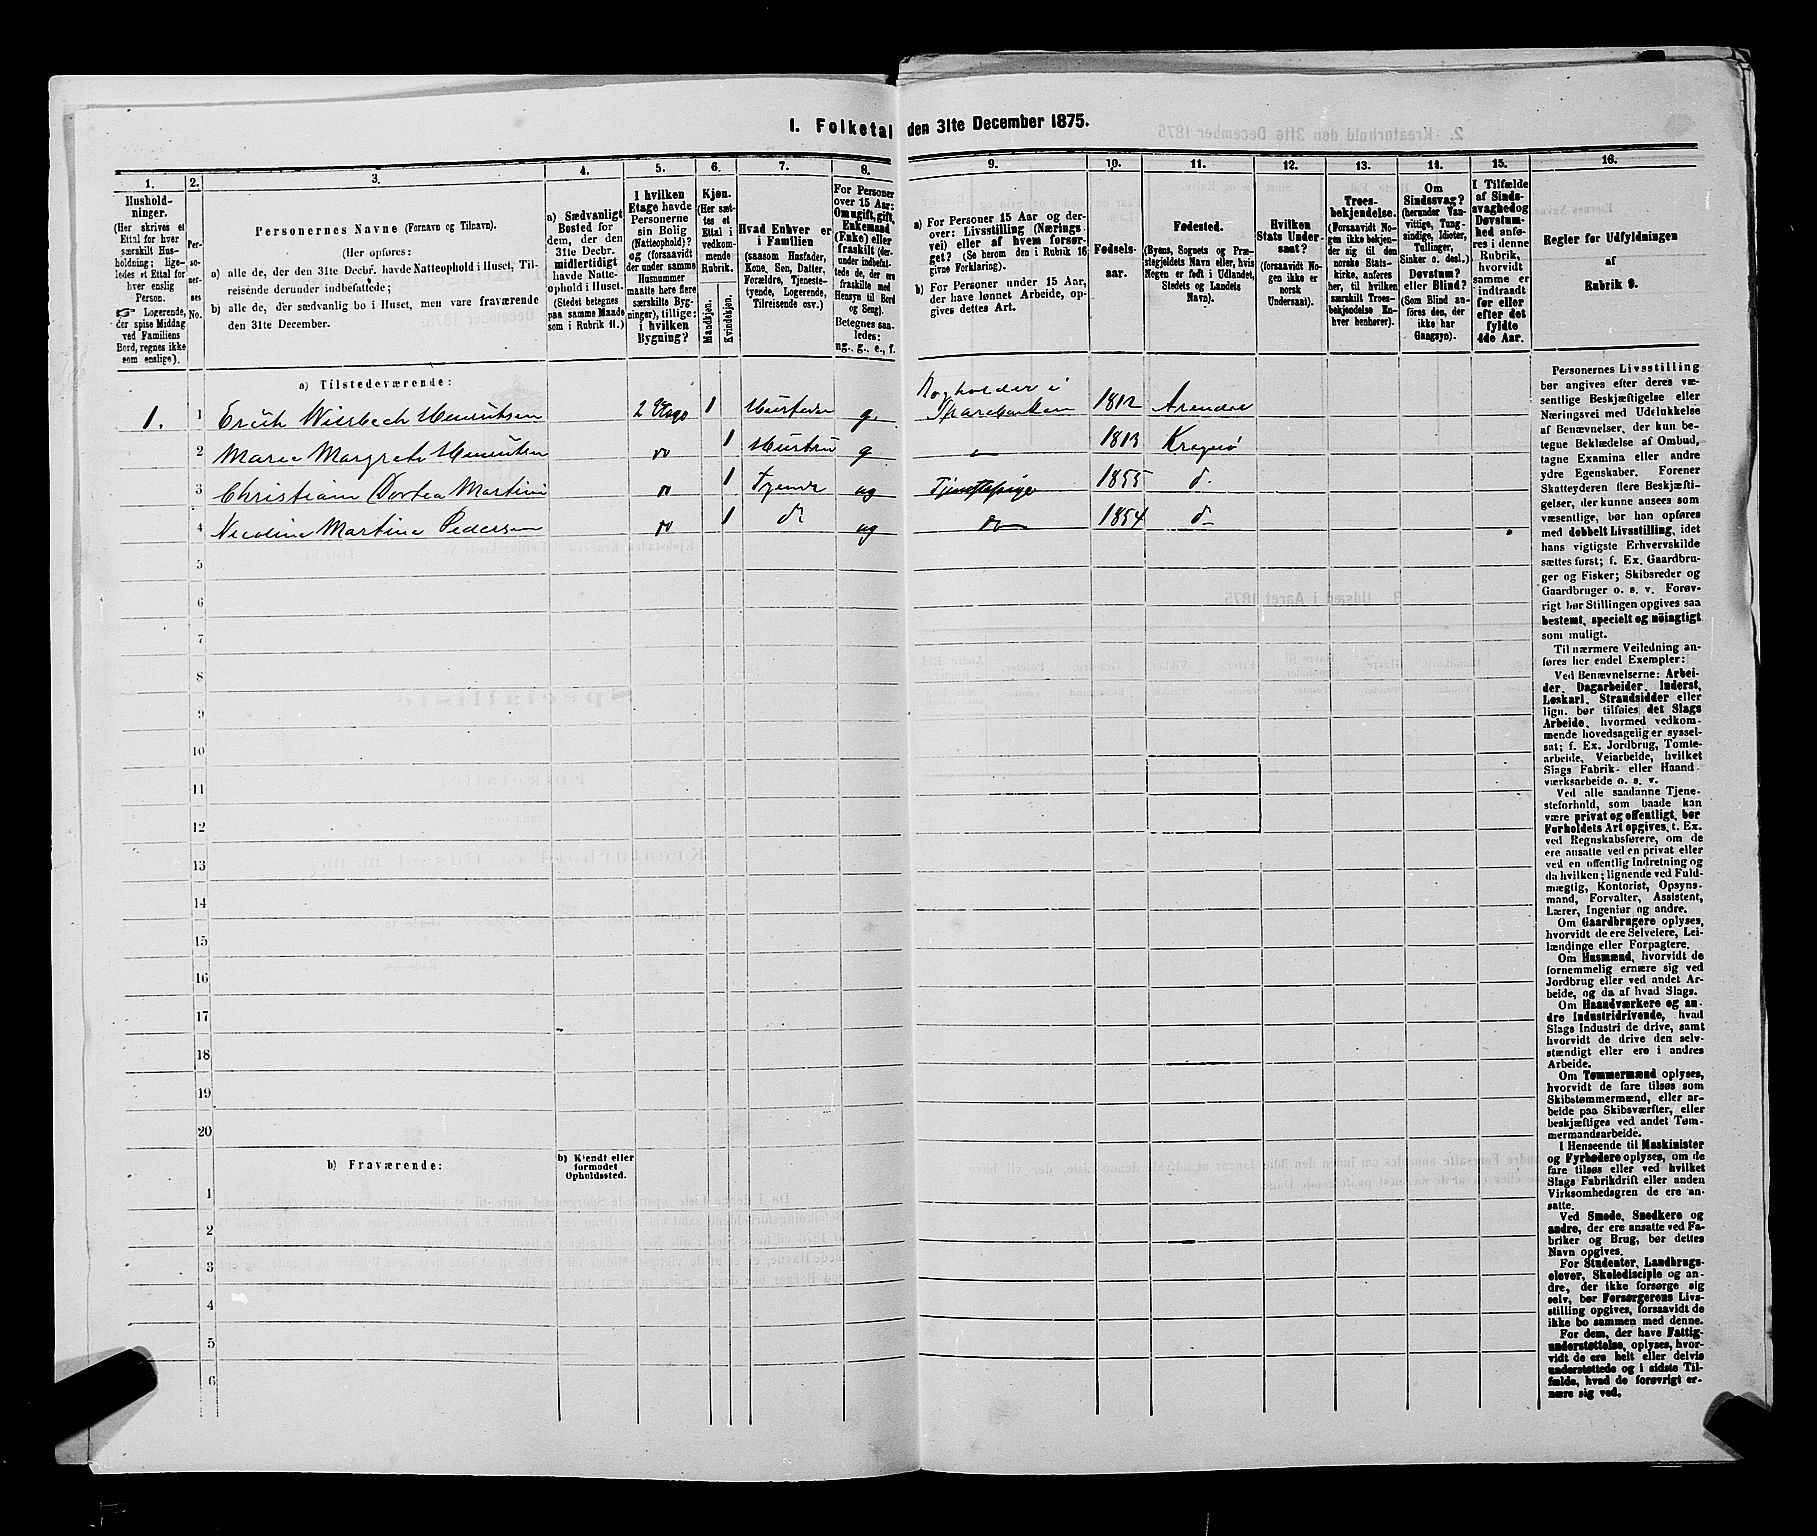 1. Folketal den 31te December 1875.
1.
Hushold-
ninger.
(Her skrives et
Ettal for hver
særskilt Hus-
holdning; lige-
ledes et Ettal for
hver enslig
Person.
☞ Logerende,
der spise Middag
ved Familiens
Bord, regnes ikke
som enslige).
2.
Per-
so-
ner-
nes
No.
3.
Personernes Navne (Fornavn og Tilnavn).
(Her opføres:
a) alle de, der den 31te Decbr. havde Natteophold i Huset, Til-
reisende derunder indbefattede;
b) alle de, der sædvanlig bo i Huset, men vare fraværende
den 31te December.
4.
a) Sædvanligt
Bosted for
dem, der den
31te Decbr.
midlertidigt
havde Natte-
ophold i Huset.
(Stedet betegnes
paa samme Maade
som i Rubrik 11.)
5.
I hvilken
Etage havde
Personerne
sin Bolig
(Natteophold)?
og (forsaavidt
der under samme
Husnummer
maatte høre flere
særskilte Byg-
ninger), tillige:
i hvilken
Bygning?
6.
Kjøn.
(Her sæt-
tes et
Ettal i
vedkom-
mende
Rubrik.
Mandkjøn.
Kvindekjøn.
7.
Hvad Enhver er
i Familien
(saasom Husfader,
Kone, Søn, Datter,
Forældre, Tjeneste-
tyende, Logerende,
Tilreisende osv.)
8.
For Personer
over 15 Aar:
Om ugift, gift,
Enkemand
(Enke) eller
fraskilt (der-
under indbefat-
tede de, der ere
fraskilte med
Hensyn til Bord
og Seng).
Betegnes saa-
ledes:
ug., g., e., f.
9.
a) For Personer 15 Aar og der-
over: Livsstilling (Nærings-
vei) eller af hvem forsør-
get? (Se herom den i Rubrik 16
givne Forklaring).
b) For Personer under 15 Aar,
der have lønnet Arbeide, op-
gives dettes Art.
10.
Fødsels-
aar.
11.
Fødested.
(Byens, Sognets og Præ-
stegjeldets Navn eller, hvis
Nogen er født i Udlandet,
Stedets og Landets
Navn).
12.
Hvilken
Stats Under-
saat?
(forsaavidt No-
gen ikke er
norsk
Undersaat).
13.
Troes-
bekjendelse.
(Forsaavidt No-
gen ikke bekjen-
der sig til den
norske Stats-
kirke, anføres
her, til hvilken
særskilt Troes-
bekjendelse En-
hver henhører).
14.
Om
Sindssvag?
(herunder Van-
vittige, Tung-
sindige, Idioter,
Tullinger,
Sinker o. desl.)
Døvstum?
eller Blind?
(Som Blind an-
føres den, der
ikke har
Gangsyn).
15.
I Tilfælde
af Sinds-
svaghed og
Døvstum-
hed anfø-
res i denne
Rubrik,
hvorvidt
samme er
indtraadt
før eller
efter det
fyldte
4de Aar.
16.
Regler for Udfyldningen
af
Rubrik 9.
a) Tilstedeværende:
1. 1 Erich Wiesbech Henrichsen 2 Etage 1 Husfader g Bogholder i Sparebanken 1812 Arendal
2 Maren Margrete Henrichsen do 1 Hustru g 1813 Kragerø
3 Christiane Dortea Martini do 1 Tyende ug Tjenestepige 1855 do
4 Nicoline Martine Pedersen do 1 do ug do 1854 do
5
6
7
8
9
10
11
12
13
14
15
16
17
18
19
20
b) Fraværende:
b) Kjendt eller
formodet
Opholdssted.
1
2
3
4
5
6
Personernes Livsstilling
bør angives efter deres væ-
sentlige Beskjæftigelse eller
Næringsvei med Udelukkelse
af Benævnelser, der kun be-
tegne Beklædelse af Ombud,
tagne Examina eller andre
ydre Egenskaber. Forener
Skatteyderen flere Beskjæfti-
gelser, der kunne ansees som
væsentlige, bør han opføres
med dobbelt Livsstilling, idet
hans vigtigste Erhvervskilde
sættes først; f. Ex. Gaardbru-
ger og Fisker; Skibsreder og
Gaardbruger o. s. v. Forøv-
rigt bør Stillingen opgives saa
bestemt, specielt og nöiagtigt
som muligt.
Til nærmere Veiledning an-
føres her endel Exempler:
Ved Benævnelserne: Arbei-
der, Dagarbeider, Inderst,
Løskarl, Strandsidder eller
lign. bør tilføies det Slags
Arbeide, hvormed vedkom-
mende hovedsagelig er syssel-
sat; f. Ex. Jordbrug, Tomte-
arbeide, Veiarbeide, hvilket
Slags Fabrik- eller Haand-
værksarbeide o. s. v.
Ved alle saadanne Tjene-
steforhold, som baade kan
være privat og offentligt, bør
Forholdets Art opgives, f. Ex.
ved Regnskabsførere, om de
ere ansatte ved en privat eller
ved en offentlig Indretning og
da hvilken; lignende ved Fuld-
mægtig, Kontorist, Opsyns-
mand, Forvalter, Assistent,
Lærer, Ingeniør og andre.
Om Gaardbrugere oplyses,
hvorvidt de ere Selveiere, Lei-
lændinge eller Forpagtere.
Om Husmænd, hvorvidt de
fornemmelig ernære sig ved
Jordbrug eller ved andet Ar-
beide, og da af hvad Slags.
Om Haandværkere og an-
dre Industridrivende, hvad
Slags Industri de drive, samt
hvorvidt de drive den selv-
stændigt eller ere i andres
Arbeide.
Om Tømmermænd oplyses,
hvorvidt de fare tilsøs som
Skibstømmermænd, eller ar-
beide paa Skibsværfter, eller
beskjæftiges ved andet Tøm-
mermandsarbeide.
I Henseende til Maskinister
og Fyrbødere oplyses, om de
fare tilsøs eller ved hvilket
Slags Fabrikdrift eller anden
Virksomhedsgren de ere an-
satte.
Ved Smede, Snedkere og
andre, der ere ansatte ved Fa-
briker og Brug, bør dettes
Navn opgives.
For Studenter, Landbrugs-
elever, Skoledisciple og an-
dre, der ikke forsørge sig
selv, bør Forsørgerens Livs-
stilling opgives, forsaavidt de
ikke bo sammen med denne.
For dem, der have Fattig-
understøttelse, oplyses, hvor-
vidt de ere helt eller delvis
understøttede og i sidste Til-
fælde, hvad de forøvrigt er-
nære sig ved.